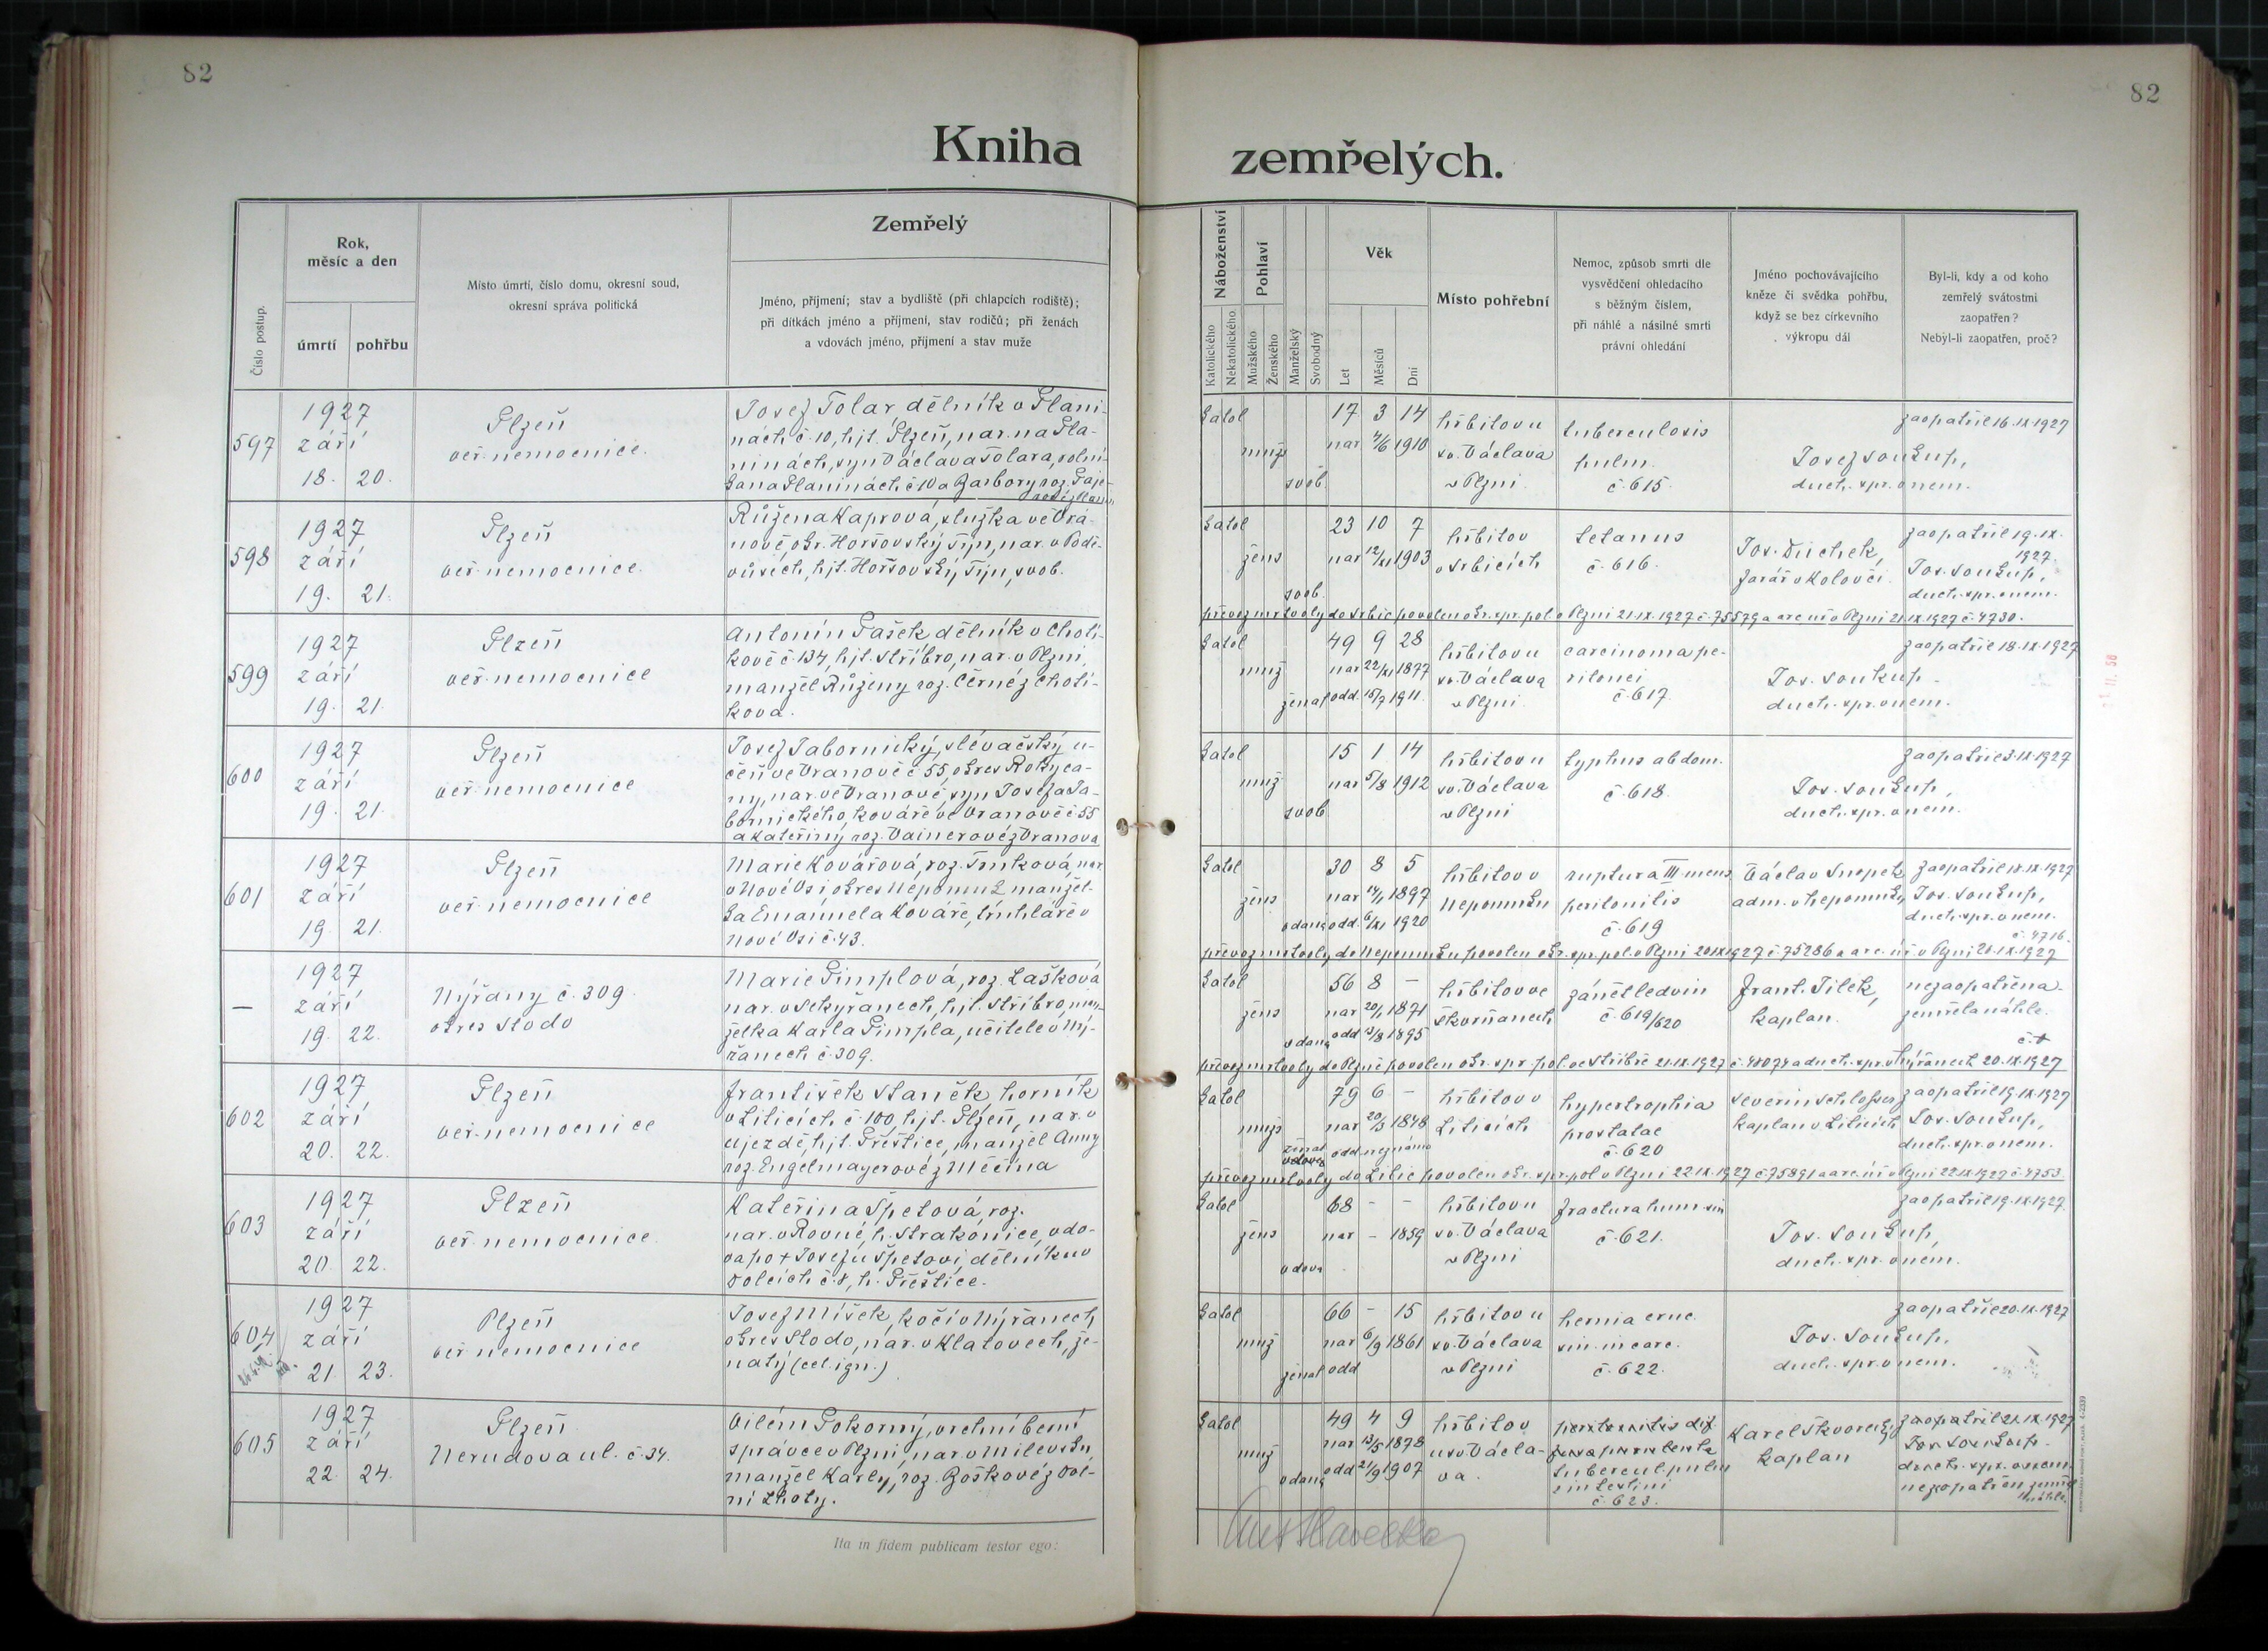 82
82
Kniha
zemřelých.
Číslo postup.
Rok,
měsíc a den
úmrtí
pohřbu
Místo úmrtí, číslo domu, okresní soud,
okresní správa politická
Zemřelý
Jméno, příjmení; stav a bydliště (při chlapcích rodiště);
při dítkách jméno a příjmení, stav rodičů; při ženách
a vdovách jméno, příjmení a stav muže
Náboženství
Katolického
Nekatolického
Pohlaví
Mužského
Ženského
Manželský
Svobodný
Věk
Let
Měsíců
Dní
Místo pohřební
Nemoc, způsob smrti dle
vysvědčení ohledacího
s běžným číslem,
při náhlé a násilné smrti
právní ohledání
Jméno pochovávajícího
kněze či svědka pohřbu,
když se bez církevního
výkropu dál
Byl-li, kdy a od koho
zemřelý svátostmi
zaopatřen?
Nebyl-li zaopatřen, proč?
597
1927
září
18. 20.
Plzeň
veř. nemocnice.
Josef Tolar, dělník v Plani-
nách č. 10, hjt. Plzeň, nar. na Pla-
ninách, syn Václava Tolara, rolní-
ka na Planinách č. 10 a Barbory roz.
katol
muž
svob.
17 3 14
nar 4/6 1910
hřbitov u
sv. Václava
v Plzni
tuberculosis
pulm.
č. 615.
Josef Soukup,
duch. spr. v nem.
zaopatřil 16. IX. 1927
598
1927
září
19. 21.
Plzeň
veř. nemocnice.
Růžena Kaprová, služka ve Vrá-
nově, okr. Horšovský Týn, nar. v Podě-
vůsích, hjt. Horšovský Týn, svob.
katol
žens
svob.
23 10 7
nar 12/XI 1903
hřbitov
v Srbicích
tetanus
č. 616.
Jos. Duchek,
farář v Koloveči.
zaopatřil 19. IX.
1927.
Jos. Soukup,
duch. spr. v nem.
převoz mrtvoly do Srbic povolen okr. spr. pol. v Plzni 21. IX. 1927 č. 75579 a arc. úř. v Plzni 21. IX. 1927 č. 4730.
599
1927
září
19. 21.
Plzeň
veř. nemocnice
Antonín Pašek dělník v Choti-
kově č. 134, hjt. Stříbro, nar. v Plzni,
manžel Růženy roz. Černé z Choti-
kova.
katol
muž
ženat
49 9 28
nar 22/XI 1877
odd. 15/7 1911.
hřbitov u
sv. Václava
v Plzni
carcinoma pe-
ritonei
č. 617.
Jos. Soukup
duch. spr. v nem.
zaopatřil 18. IX. 1927
600
1927
září
19. 21.
Plzeň
veř. nemocnice
Josef Tabornický, slévačský u-
čeň ve Vranově č. 55, okres Rokyca-
ny, nar. ve Vranově, syn Josefa Ta-
bornického, kováře ve Vranově č. 55
a Kateřiny roz. Vainerové z Vranova
katol
muž
svob
15 1 14
nar 5/8 1912
hřbitov u
sv. Václava
v Plzni
typhus abdom.
č. 618.
Jos. Soukup,
duch. spr. v nem.
zaopatřil 3. IX. 1927
601
1927
září
19. 21.
Plzeň
veř. nemocnice
Marie Kovářová, roz. Trnková, nar.
v Nové Vsi okres Nepomuk manžel-
ka Emanuela Kováře, truhláře v
Nové Vsi č. 43.
katol
žens
vdaná
30 8 5
nar 14/1 1897
odd. 6/XI 1920
hřbitov v
Nepomuku
ruptura III mens
peritonitis
č. 619
Václav Snopek
adm. v Nepomuku,
zaopatřil 18. IX. 1927
Jos. Soukup,
duch. spr. v nem.
č. 4716.
převoz mrtvoly do Nepomuku povolen okr. spr. pol. v Plzni 20. IX. 1927 č. 75286 a arc. úř. v Plzni 21. IX. 1927
—
1927
září
19. 22.
Nýřany č. 309.
okres Stodo
Marie Pimplová, roz. Lašková
nar. v Sekyřanech, hjt. Stříbro, man-
želka Karla Pimpla, učitele v Ný-
řanech č. 309.
katol
žens
vdaná
56 8 -
nar 20/1 1871
odd 13/8 1895
hřbitov ve
Skvrňanech
zánět ledvin
č. 619/620
Frant. Tilek,
kaplan.
nezaopatřena
zemřela náhle.
převoz mrtvoly do Plzně povolen okr. spr. pol. ve Stříbře 21. IX. 1927 č. 48074 a duch. spr. v Nýřanech 20. IX. 1927
602
1927
září
20. 22.
Plzeň
veř. nemocnice
František Staněk, horník
v Liticích č. 100, hjt. Plzeň, nar. v
Újezdě, hjt. Přeštice, manžel Anny
roz. Engelmayerové z Měčína
katol
muž
ženat
vdovec
79 6 -
nar 20/3 1848
odd. neznámo
hřbitov v
Liticích
hypertrophia
prostatae
č. 620
Severin Schlosser
kaplan v Liticích
zaopatřil 19. IX. 1927
Jos. Soukup,
duch. spr. v nem.
převoz mrtvoly do Litic povolen okr. spr. pol. v Plzni 22. IX. 1927 č. 75891 a arc. úř. v Plzni 22. IX. 1927 č. 4753.
603
1927
září
20. 22.
Plzeň
veř. nemocnice
Kateřina Špetová, roz.
nar. v Rovné, h. Strakonice, vdo-
va po + Josefu Špetovi, dělníku v
Dolcích č. 8, h. Přeštice.
katol
žens
vdova
68 - -
nar - 1859
hřbitov u
sv. Václava
v Plzni
fractura hum. sin
č. 621.
Jos. Soukup,
duch. spr. v nem.
zaopatřil 19. IX. 1927.
604
1927
září
21. 23.
Plzeň
veř nemocnice
Josef Míšek, kočí v Nýřanech,
okres Stodo, nar. v Klatovech, že-
natý (cel. ign.)
katol
muž
ženat
66 - 15
nar 6/9 1861
odd
hřbitov u
sv. Václava
v Plzni
hernia crur.
sin. incarc.
č. 622.
Jos. Soukup,
duch. spr. v nem.
zaopatřil 20. IX. 1927
605
1927
září
22. 24.
Plzeň
Nerudova ul. č. 34.
Vilém Pokorný, vrchní berní
správce v Plzni, nar. v Milevsku,
manžel Karly, roz. Boškové z Dol-
ní Lhoty.
katol
muž
vdaná
49 4 9
nar 13/5 1878
odd 21/9 1907
hřbitov
u sv. Václa-
va.
peritonitis dif.
tubercul. pulm
intestini
č. 623.
Karel Škvorecký
kaplan
zaopatřil 21. IX. 1927
Jos. Soukup.
duch. spr. v nem.
nezaopatřen zemřel
náhle.
Ita in fidem publicam testor ego: